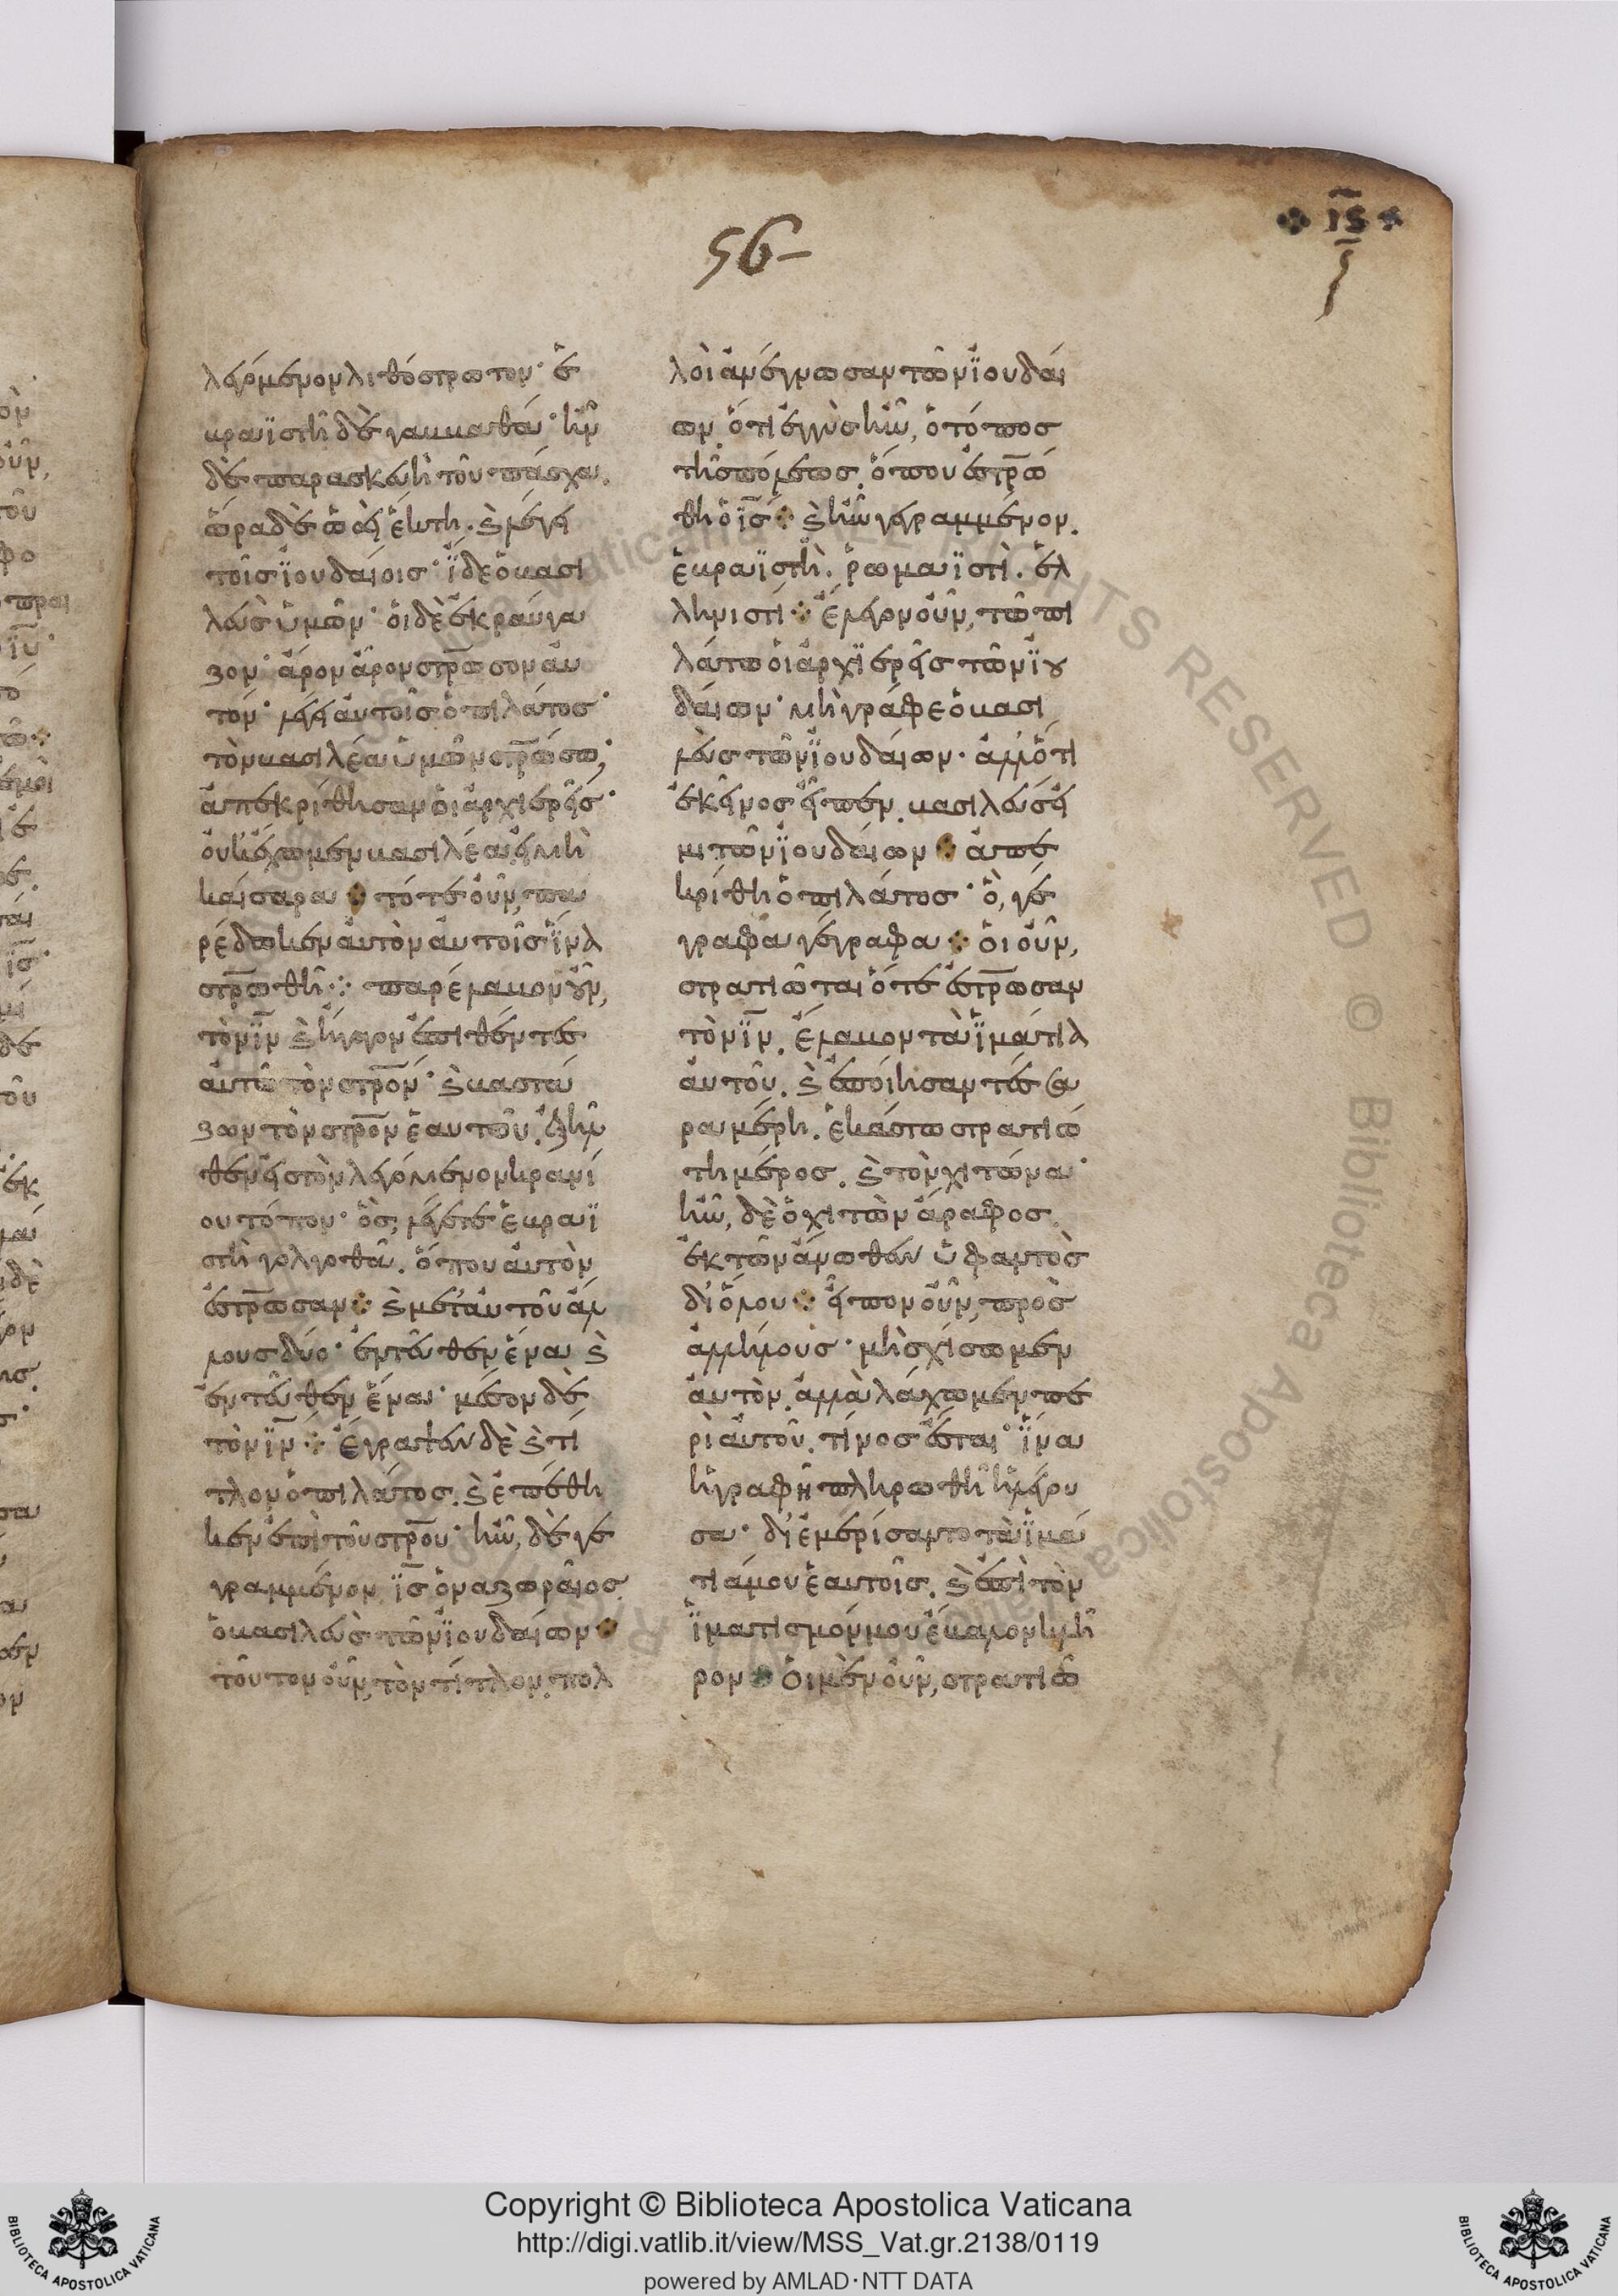 56-
ιϛ
λεγόμενον λιθόστρωτον· ἑ
βραϊστὶ δὲ γαββαθά· ἦν
δὲ παρασκευὴ τοῦ πάσχα.
ὥρα δὲ ὡσεὶ ἕκτη. ϗ λέγει
τοῖς ἰουδαίοις· ἴδε ὁ βασι
λεὺς ὑμῶν· οἱ δὲ ἐκραύγα
ζον· ἆρον ἆρον στρ̅ωσον αυ
τόν· λέγει αὐτοῖς ὁ πιλάτος·
τὸν βασιλέα ὑμῶν στρ̅ώσω;
ἀπεκρίθησαν οἱ ἀρχιερεῖς·
οὐκ ἔχομεν βασιλέα εἰ μὴ
καίσαρα ⁘ τότε οὖν, πα
ρέδωκεν αὐτὸν αὐτοῖς ἵνα
στρ̅ωθῆ ⁘ παρέλαβον οὖν,
τὸν ι̅ν̅ ϗ ἤγαγον ἐπιθέντες
αὐτῶ τὸν στρ̅ον· ϗ βαστά
ζων τὸν στρ̅ον ἑαυτοῦ. ἐξῆλ
θεν εἰς τὸν λεγόμενον κρανί
ου τόπον· ὃς λέγεται ἑβραϊ
στὶ γολγοθᾶ. ὅπου αὐτὸν
ἐστρ̅ωσαν ⁘ ϗ μετ' αὐτοῦ ἄλ
λους δύο· ἐντεῦθεν ἕνα ϗ
ἐντεῦθεν ἕνα· μέσον δὲ
τὸν ι̅ν̅ ⁘ ἔγραψεν δὲ ϗ τί
τλον ὁ πιλάτος. ϗ ἐπέθη
κεν ἐπὶ τοῦ στρ̅ου· ἦν, δὲ γε
γραμμένον ι̅ς̅ ὁ ναζωραῖος
ὁ βασιλεὺς τῶν ἰουδαίων ⁘
τοῦτον οὖν, τὸν τίτλον. πολ
λοὶ ἀνέγνωσαν τῶν ἰουδαί
ων. ὅτι ἐγγὺς ἦν, ὁ τόπος
τῆς πόλεως. ὅπου ἐστρ̅ώ
θη ὁ ι̅ς̅ ⁘ ϗ ἦν γεγραμμένον.
ἑβραϊστὶ. ῥωμαϊστὶ. ἑλ
ληνιστί ⁘ ἔλεγον οὖν, τῶ πι
λάτω οἱ ἀρχιερεῖς τῶν ἰου
δαίων· μὴ γράφε ὁ βασι
λεὺς τῶν ἰουδαίων· ἀλλ' ὅτι
ἐκεῖνος εἶπεν. βασιλεύς εἰ
μι τῶν ἰουδαίων ⁘ ἀπε
κρίθη ὁ πιλάτος· ὃ, γέ
γραφα γέγραφα ⁘ οἱ οὖν,
στρατιῶται ὅτε ἐστρ̅ωσαν
τὸν ι̅ν̅. ἔλαβον τὰ ἱμάτια
αὐτοῦ. ϗ ἐποίησαν τέσσα
ρα μέρη. ἑκάστω στρατιώ
τη μέρος. ϗ τὸν χιτῶνα·
ἦν, δὲ ὁ χιτὼν ἄραφος
ἐκ τῶν ἄνωθεν ὑφαντὸς
δι' ὅλου ⁘ εἶπον οὖν, πρὸς
ἀλλήλους· μὴ σχίσωμεν
αὐτὸν. ἀλλὰ λάχωμεν πε
ρὶ αὐτοῦ. τίνος ἔσται· ἵνα
ἡ γραφὴ πληρωθῆ ἡ λέγου
σα· διεμερίσαντο τὰ ἱμά
τιά μου ἑαυτοῖς. ϗ ἐπὶ τὸν
ἱματισμόν μου ἔβαλον κλῆ
ρον ⁘ οἱ μὲν οὖν, στρατιῶ
Copyright © Biblioteca Apostolica Vaticana
http://digi.vatlib.it/view/MSS_Vat.gr.2138/0119
powered by AMLAD·NTT DATA
BIBLIOTECA APOSTOLICA VATICANA
BIBLIOTECA APOSTOLICA VATICANA